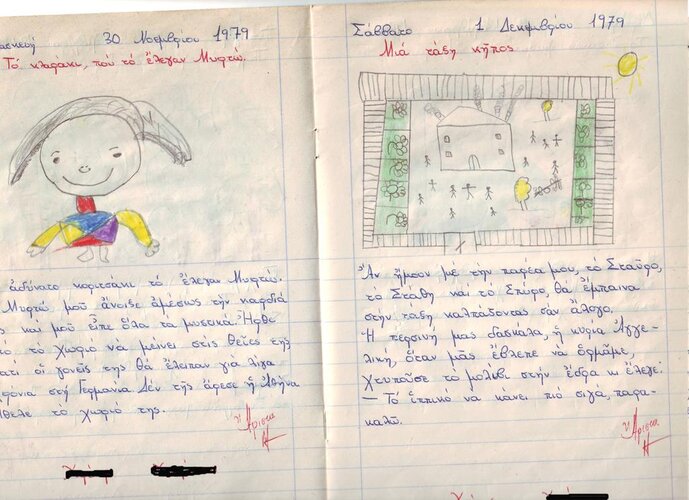 ασκευή 30 Νοεμβρίου 1979
Τό κλαράκι, πού τό ἔλεγαν Μυρτώ.
ἀδύνατο κοριτσάκι τό ἔλεγαν Μυρτώ.
Μυρτώ μοῦ ἄνοιξε ἀμέσως τήν καρδιά
ς καί μοῦ εἶπε ὅλα τα μυσικά. Ἦρθε
τό χωριό νά μείνει στίς θεῖες της
ατί οἱ γονεῖς της θά ἔλειπαν γιά λίγα
ρόνια στή Γερμανία. Δέν τῆς ἄρεσε ἡ Ἀθήνα
ἤθελε τό χωριό της.
Ἄριστα
Σάββατο 1 Δεκεμβρίου 1979
Μιά τάξη κῆπος
Ἄν ἤμουν μέ τήν παρέα μου, τό Σταῦρο,
τό Στάθη καί τό Σπύρο, θά ἔμπαινα
στήν τάξη καλπάζοντας σάν ἄλογο.
Ἡ περσινή μας δασκάλα, ἡ κυρία Ἀγγε-
λική, ὅταν μᾶς ἔβλεπε νά ὁρμᾶμε,
χτυποῦσε τό μολύβι στήν ἕδρα κι ἔλεγε.
— Τό ἱππικό νά κάνει πιό σιγά, παρα-
καλῶ.
Ἄριστα